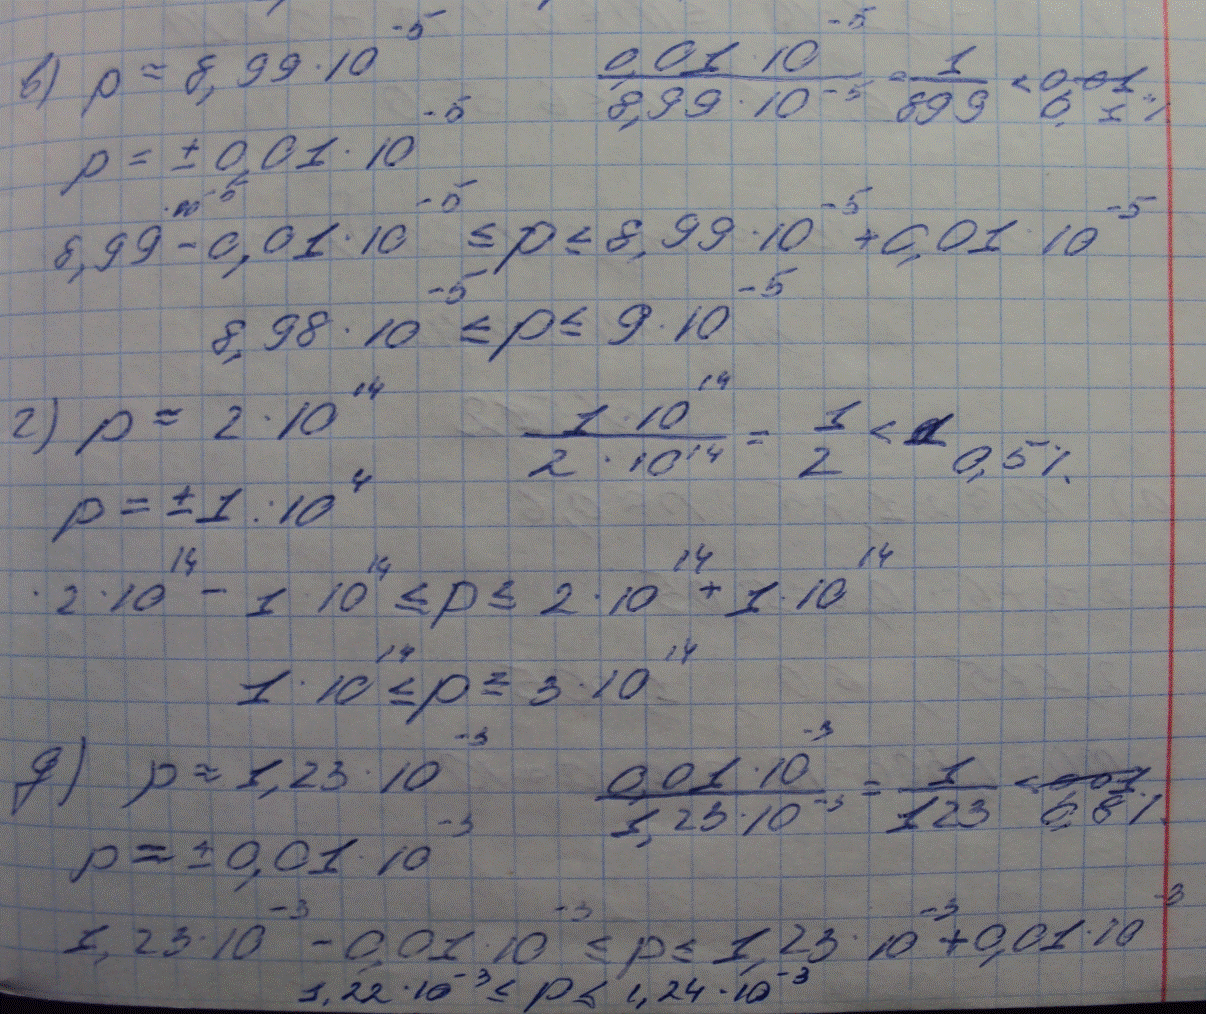 в) p ≈ 8,99·10⁻⁵   0,01·10⁻⁵ / 8,99·10⁻⁵ = 1/899 < 0,1%
p = ±0,01·10⁻⁵
8,99·10⁻⁵ - 0,01·10⁻⁵ ≤ p ≤ 8,99·10⁻⁵ + 0,01·10⁻⁵
8,98·10⁻⁵ ≤ p ≤ 9·10⁻⁵
г) p ≈ 2·10¹⁴   1·10¹⁴ / 2·10¹⁴ = 1/2 < 0,5%.
p = ±1·10⁴
2·10¹⁴ - 1·10¹⁴ ≤ p ≤ 2·10¹⁴ + 1·10¹⁴
1·10¹⁴ ≤ p ≥ 3·10¹⁴
д) p ≈ 1,23·10⁻³   0,01·10⁻³ / 1,23·10⁻³ = 1/123 < 0,8%.
p = ±0,01·10⁻³
1,23·10⁻³ - 0,01·10⁻³ ≤ p ≤ 1,23·10⁻³ + 0,01·10⁻³
1,22·10⁻³ ≤ p ≤ 1,24·10⁻³